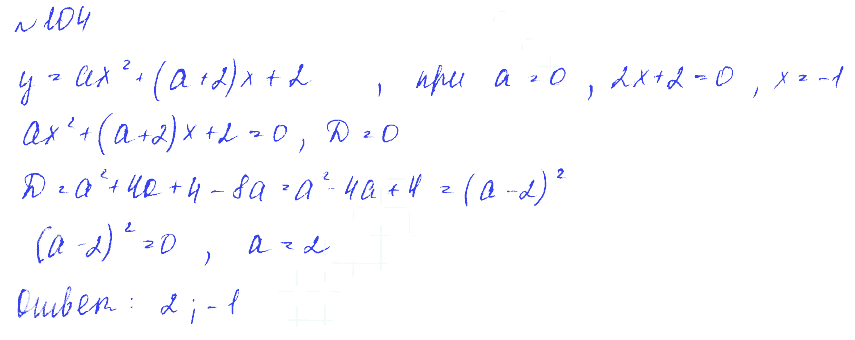 №104
y = ax² + (a+2)x + 2 , при a = 0 , 2x+2 = 0 , x = -1
ax² + (a+2)x + 2 = 0 , D = 0
D = a² + 4a + 4 - 8a = a² - 4a + 4 = (a-2)²
(a-2)² = 0 , a = 2
Ответ: 2 ; -1